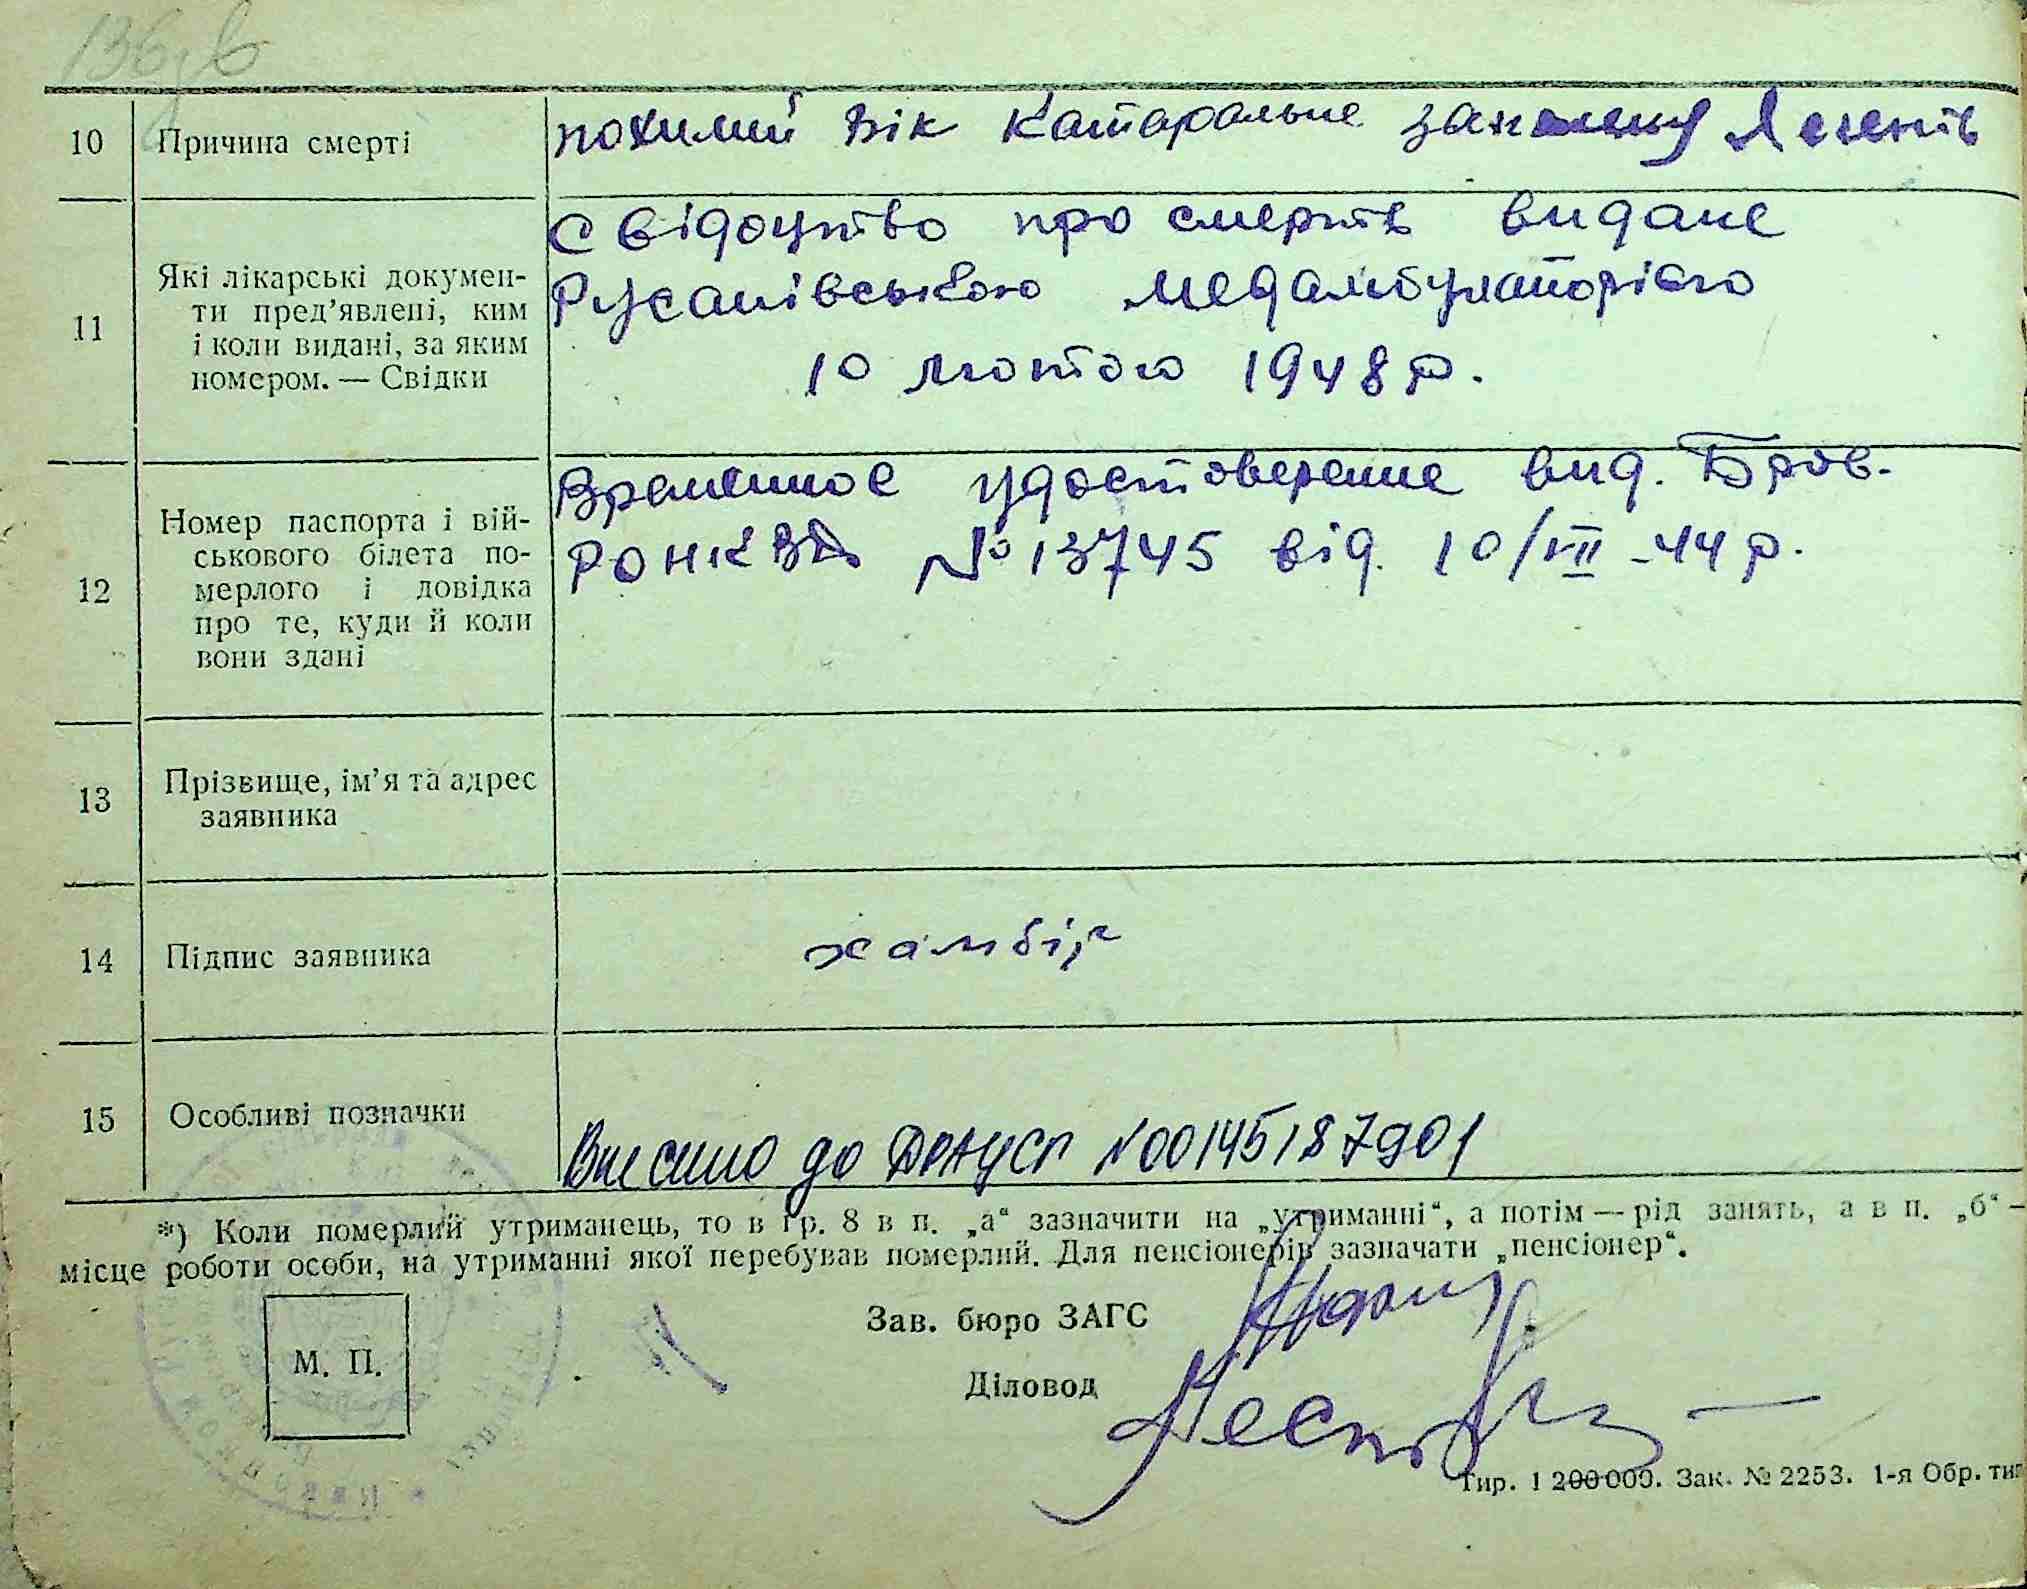 136зв
10 Причина смерті похилий вік катаральне запалення Легенів
11 Які лікарські докумен-
ти пред’явлені, ким
і коли видані, за яким
номером. — Свідки
Свідоцтво про смерть видане
Русанівською медамбулаторією
10 лютого 1948 р.
12 Номер паспорта і вій-
ськового білета по-
мерлого і довідка
про те, куди й коли
вони здані
Временное удостоверение вид. Бров.
РОНКВД № 13745 від. 10/VII - 44 р.
13 Прізвище, ім’я та адрес
заявника
14 Підпис заявника
15 Особливі позначки Внесено до ДРАЦСГ №00145187901
*) Коли померлий утриманець, то в гр. 8 в п. „а“ зазначити на „утриманні“, а потім — рід занять, а в п. „б“ –
місце роботи особи, на утриманні якої перебував померлий. Для пенсіонерів зазначати „пенсіонер“.
Зав. бюро ЗАГС
М. П.
Діловод
Тир. 1 200 000. Зак. № 2253. 1-я Обр. тип